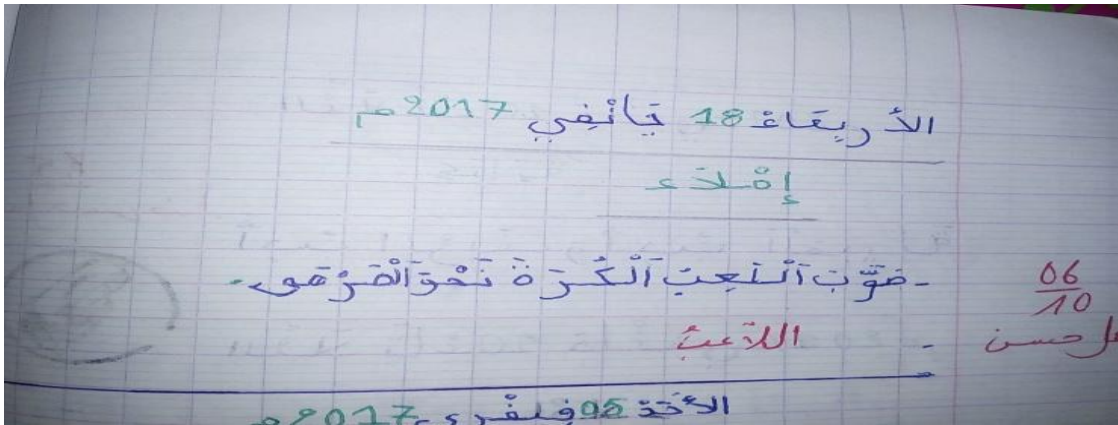 الأربعاء 18 جانفي 2017 م
إملاء
- صَوَّبَ اَلْلَعِبُ اَلْكُرَةَ نَحْوَ اَلْمَرْمَى -
- اللاَّعبُ
06
10
عمل حسن
الأحد 05 فيفري 2017 م